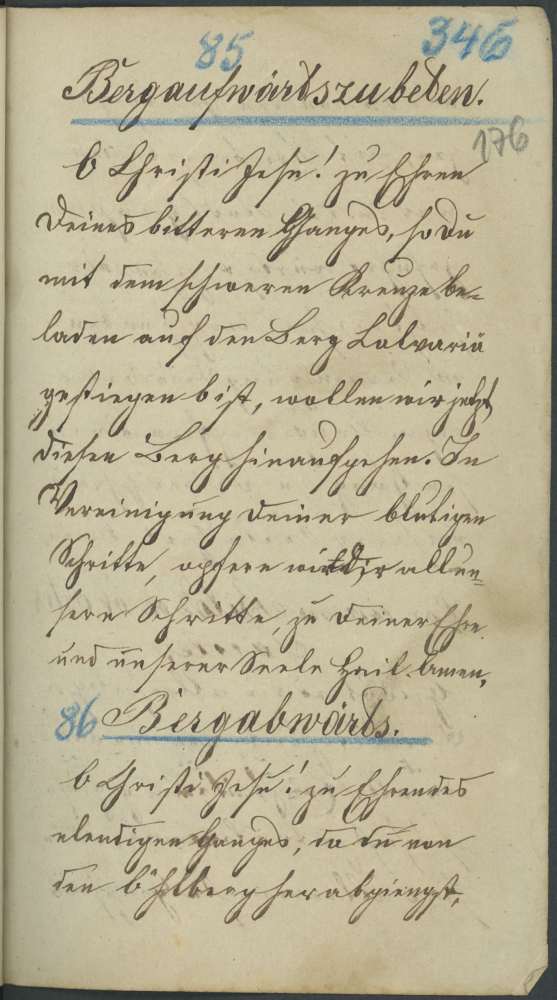 85 346
Bergaufwärts zu beten.
176
O Christi Jesu! zu Ehren
Deines bitteren Ganges, so Du
mit dem schweren Kreuze be-
laden auf den Berg Calvariä
gestiegen bist, wollen wir jetzt
diesen Berg hinaufgehen. In
Vereinigung deiner blutigen
Schritte, opfern wir Dir all un=
sere Schritte, zu Deiner Ehre
und unserer Seele Heil. Amen.
86 Bergabwärts.
O Christi Jesu! zu Ehren des
elendigen Ganges, da du von
den Öhlberg herabgiengst,